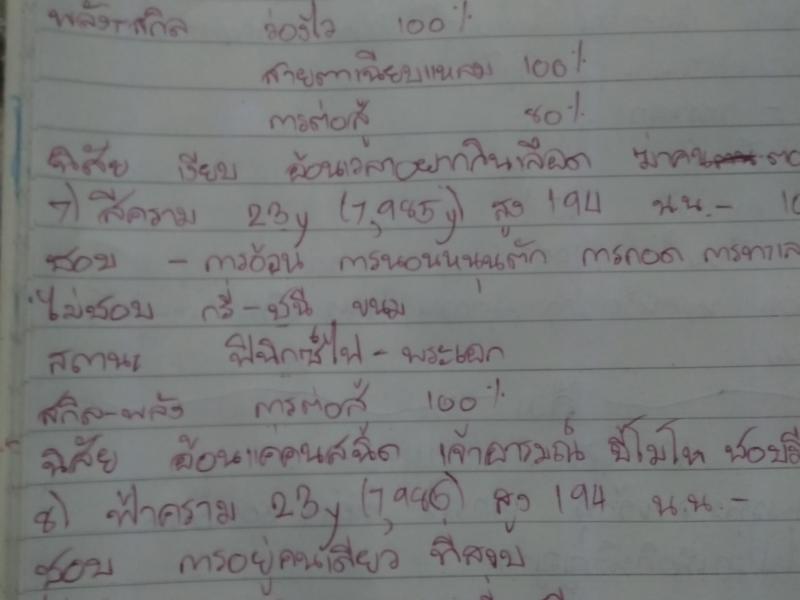 พลัง-สกิล ว่องไว 100%
สายตาเฉียบแหลม 100%
การต่อสู้ 80%
นิสัย เงียบ อ้อนเวลาอยากกินเลือด ฆ่าคน
7) สีคราม 23y (7,985y) สูง 194 น.น.-
ชอบ - การอ้อน การนอนหนุนตัก การกอด การทา
ไม่ชอบ กรี๋-ชนี ขนม
สถานะ ฟินิกซ์ไฟ - พระเอก
สกิล-พลัง การต่อสู้ 100%
นิสัย อ้อนแค่คนสนิด เจ้าอารมณ์ ขี้โมโห ชอบ
8) ฟ้าคราม 23y (7,986) สูง 194 น.น.-
ชอบ การอยู่คนเดียว ที่สงบ